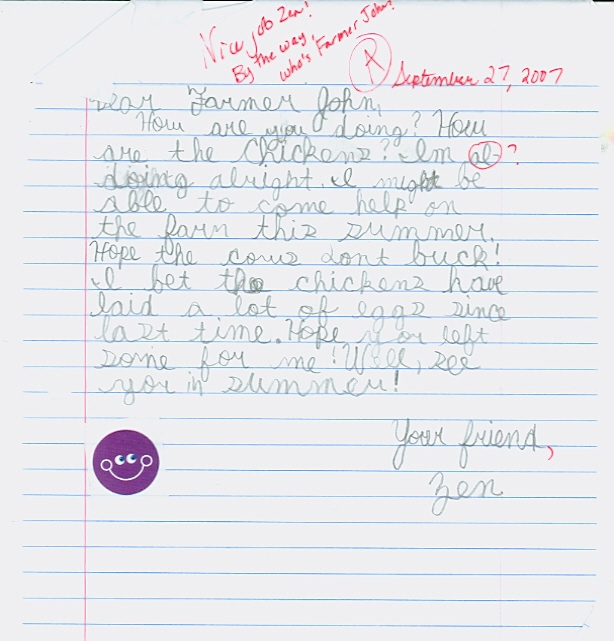 Nice job Zen!
By the way,
who's Farmer John?
A
September 27, 2007
Dear Farmer John,
How are you doing? How
are the chickenz? Im al- ?
doing alright. I might be
able to come help on
the farm thiz zummer.
Hope the cowz dont buck!
I bet the chickenz have
laid a lot of eggz zince
lazt time. Hope you left
zome for me! Well, zee
you in zummer!
Your friend,
Zen